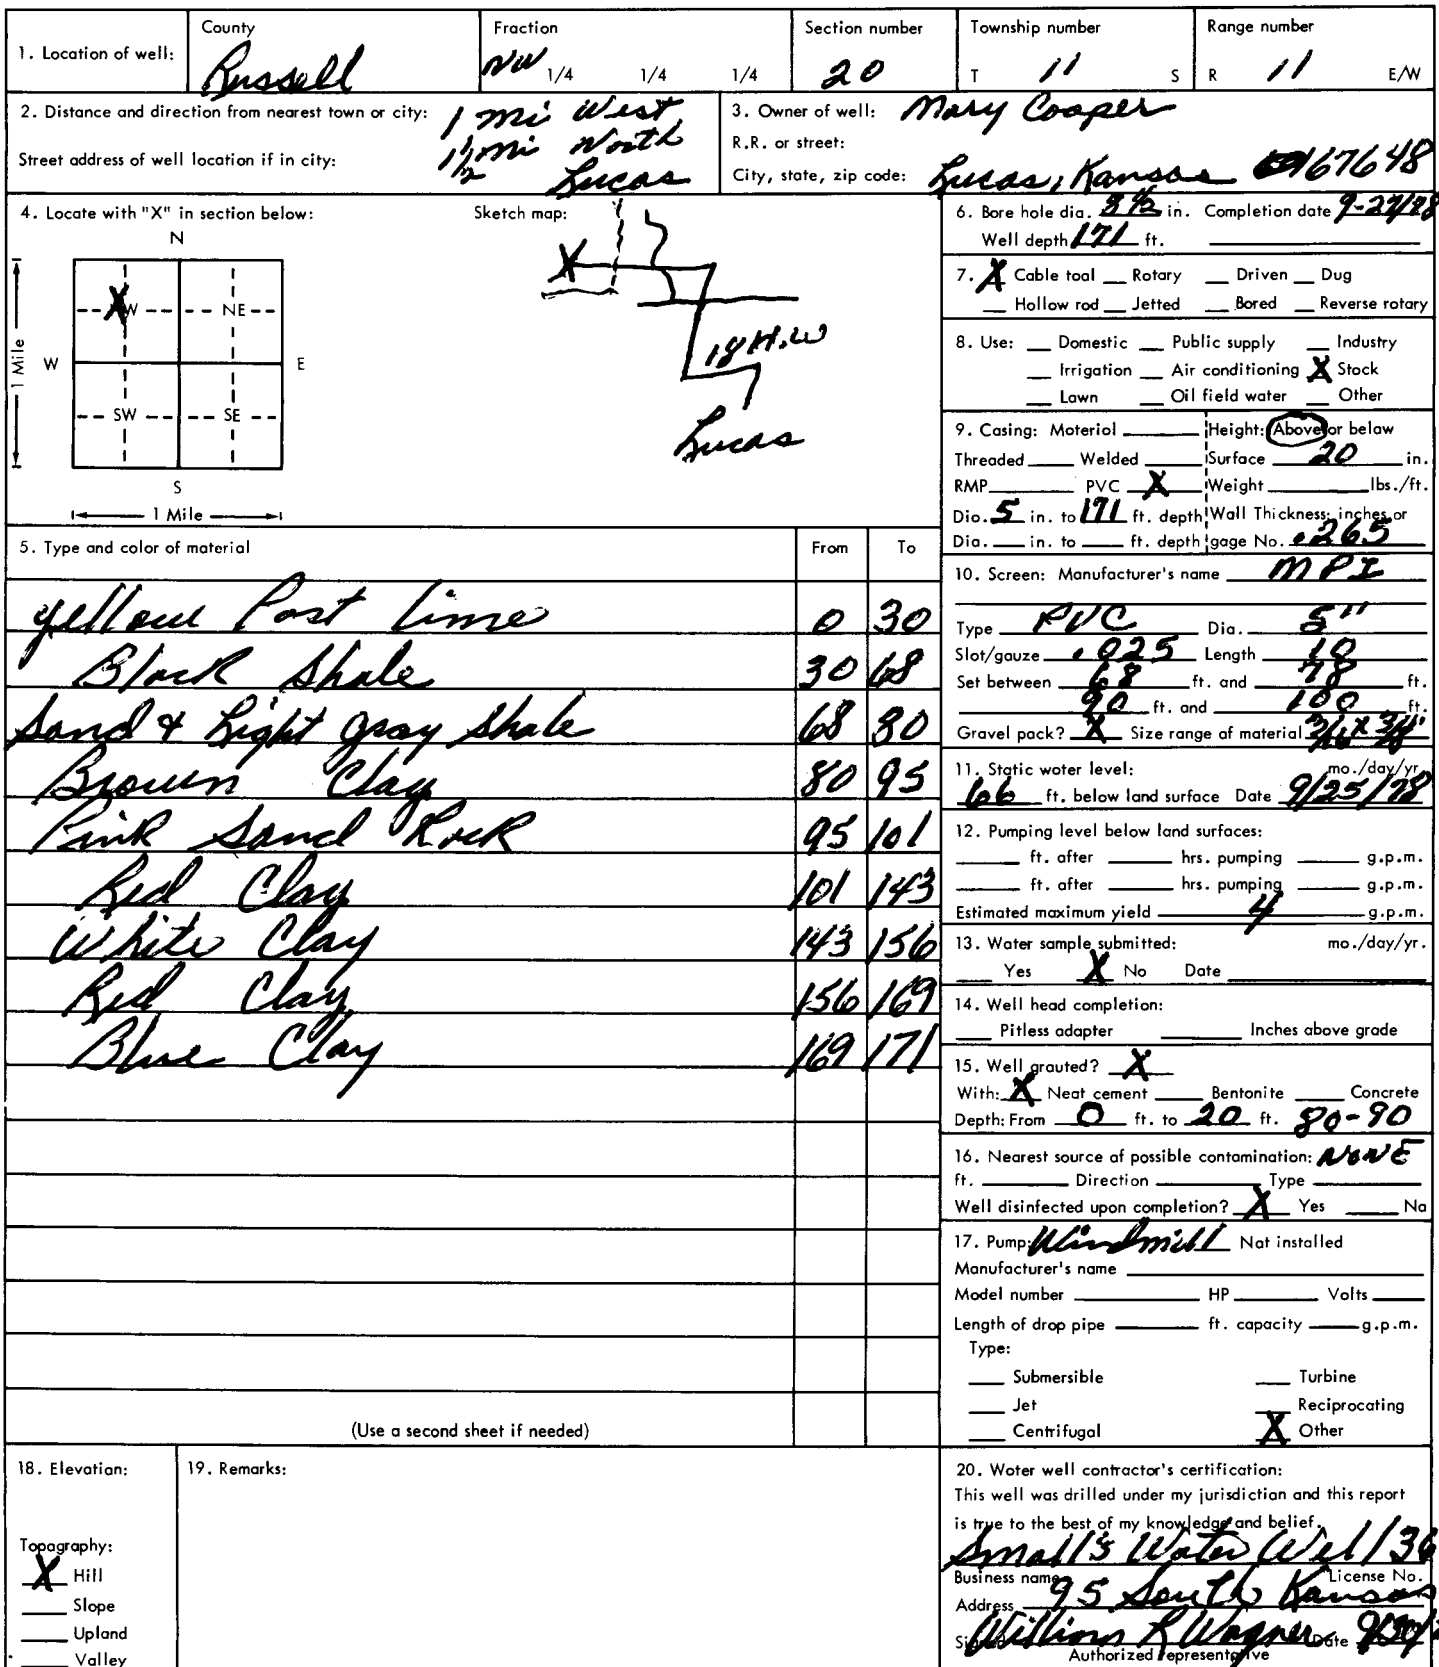 1. Location of well:
County
Russell
Fraction
NW 1/4 1/4 1/4
Section number
20
Township number
T 11 S
Range number
R 11 E/W
2. Distance and direction from nearest town or city: 1 mi West
1 1/2 mi North
Street address of well location if in city:
Lucas
3. Owner of well: Mary Cooper
R.R. or street:
City, state, zip code: Lucas, Kansas 67648
4. Locate with "X" in section below:
N
X W NE
W E
SW SE
S
1 Mile
1 Mile
Sketch map:
X
18 H.W
Lucas
5. Type and color of material From To
Yellow Post Lime 0 30
Black Shale 30 68
Sand & Light gray Shale 68 80
Brown Clay 80 95
Pink Sand Rock 95 101
Red Clay 101 143
White Clay 143 156
Red Clay 156 169
Blue Clay 169 171
(Use a second sheet if needed)
6. Bore hole dia. 8 1/2 in. Completion date
Well depth 171 ft.
7. X Cable tool __ Rotary __ Driven __ Dug
__ Hollow rod __ Jetted __ Bored __ Reverse rotary
8. Use: __ Domestic __ Public supply __ Industry
__ Irrigation __ Air conditioning X Stock
__ Lawn __ Oil field water __ Other
9. Casing: Material ____ Height: Above or below
Threaded ____ Welded ____ Surface 20 in.
RMP ____ PVC X Weight ____ lbs./ft.
Dia. 5 in. to 171 ft. depth Wall Thickness: inches or
Dia. ___ in. to ___ ft. depth gage No. .265
10. Screen: Manufacturer's name MPI
Type PVC Dia. 5"
Slot/gauze .025 Length 10
Set between 68 ft. and 78 ft.
90 ft. and 100 ft.
Gravel pack? X Size range of material
11. Static water level: mo./day/yr.
66 ft. below land surface Date 9/25/78
12. Pumping level below land surfaces:
____ ft. after ____ hrs. pumping ____ g.p.m.
____ ft. after ____ hrs. pumping ____ g.p.m.
Estimated maximum yield 4 g.p.m.
13. Water sample submitted: mo./day/yr.
__ Yes X No Date ____
14. Well head completion:
__ Pitless adapter ____ Inches above grade
15. Well grouted? X
With: X Neat cement ____ Bentonite ____ Concrete
Depth: From 0 ft. to 20 ft. 80-90
16. Nearest source of possible contamination: NONE
ft. ____ Direction ____ Type ____
Well disinfected upon completion? X Yes ____ No
17. Pump: Windmill Not installed
Manufacturer's name ____
Model number ____ HP ____ Volts ____
Length of drop pipe ____ ft. capacity ____ g.p.m.
Type:
___ Submersible ___ Turbine
___ Jet ___ Reciprocating
___ Centrifugal X Other
18. Elevation:
Topography:
X Hill
___ Slope
___ Upland
___ Valley
19. Remarks:
20. Water well contractor's certification:
This well was drilled under my jurisdiction and this report
is true to the best of my knowledge and belief.
Small's Water Well 136
Business name License No.
Address 95 South Kansas
Signed William R Wagner Date
Authorized representative